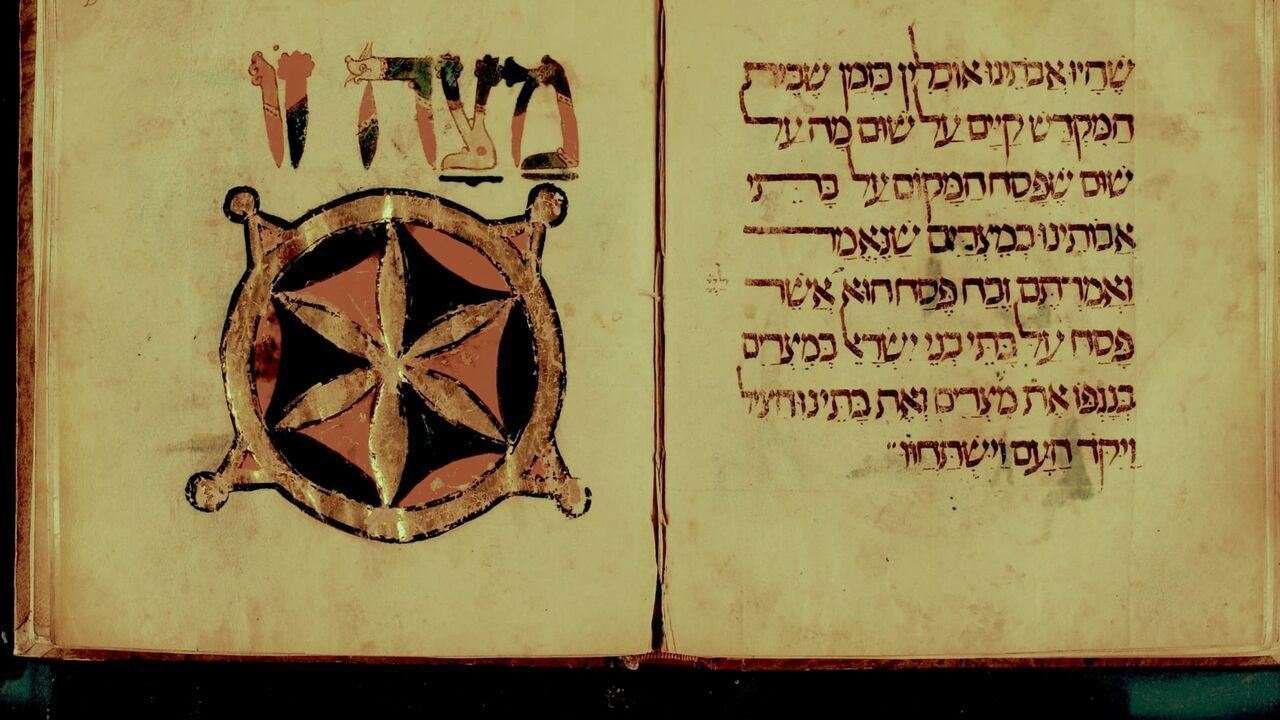 שֶׁהָיוּ אֲבֹתֵינוּ אוֹכְלִין בִּזְמַן שֶׁבֵּית
הַמִּקְדָּשׁ קַיָּים עַל שׁוּם מָה עַל
שׁוּם שֶׁפָּסַח הַמָּקוֹם עַל בָּתֵּי
אֲבוֹתֵינוּ בְּמִצְרַיִם שֶׁנֶּאֱמַר
וַאֲמַרְתֶּם זֶבַח פֶּסַח הוּא אֲשֶׁר
פָּסַח עַל בָּתֵּי בְנֵי יִשְׂרָאֵל בְּמִצְרַיִם
בְּנָגְפּוֹ אֶת מִצְרַיִם וְאֶת בָּתֵּינוּ הִצִּיל
וַיִּקֹּד הָעָם וַיִּשְׁתַּחֲווּ
מצה זו